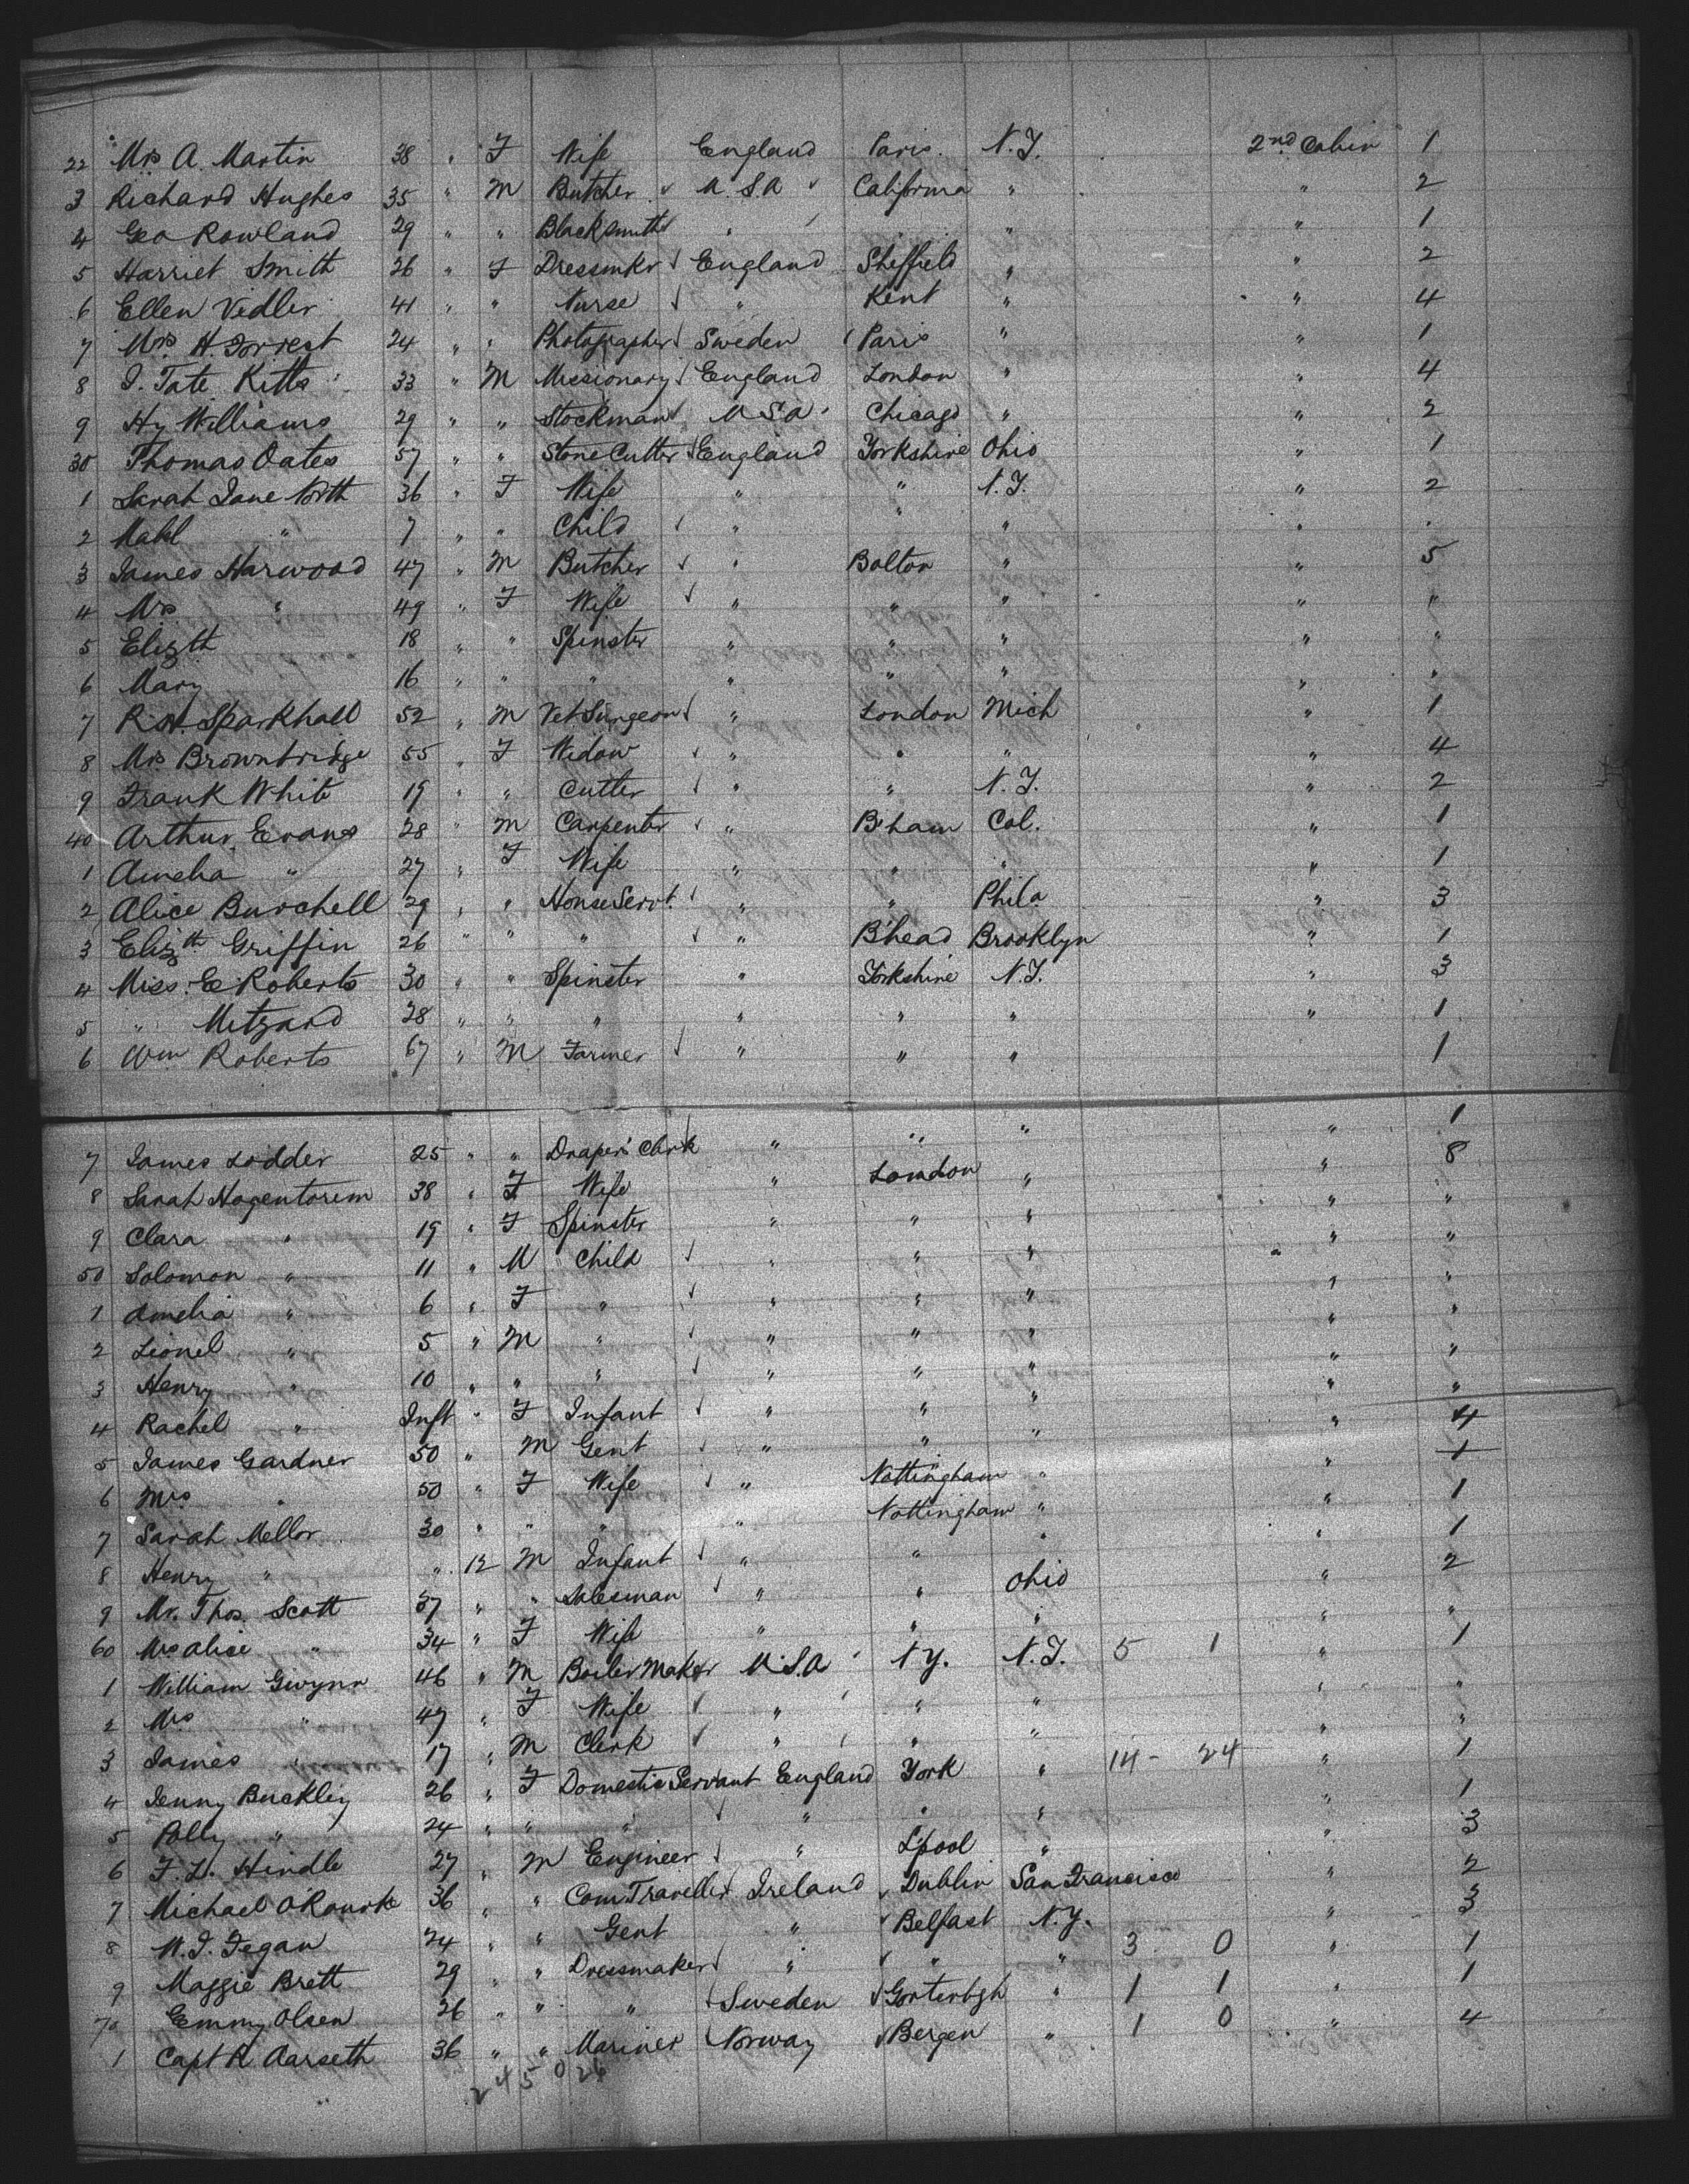 22 Mrs A. Martin 38 " F Wife England Paris. N.Y. 2nd Cabin 1
3 Richard Hughes 35 " M Butcher U.S.A California " " 2
4 Geo Rowland 29 " " Blacksmith " " " " 1
5 Harriet Smith 26 " F Dressmkr England Sheffield " " 2
6 Ellen Vidler 41 " " Nurse " Kent " " 4
7 Mrs H. Forrest 24 " " Photographer Sweden Paris " " 1
8 J. Tate Kitts 33 " M Missionary England London " " 4
9 Hy Williams 29 " " Stockman U.S.A. Chicago " " 2
30 Thomas Oates 57 " " Stone Cutter England Yorkshire Ohio " 1
1 Sarah Jane North 36 " F Wife " " N.Y. " 2
2 Mabl " 7 " " Child " " " " "
3 James Harwood 47 " M Butcher " Bolton " " 5
4 Mrs " 49 " F Wife " " " " "
5 Elizth 18 " " Spinster " " " " "
6 Mary 16 " " " " " " " "
7 R.H. Sparkhall 52 " M Vet Surgeon " London Mich " 1
8 Mrs Brownbridge 55 " F Widow " " " " 4
9 Frank White 19 " " Cutter " " N.Y. " 2
40 Arthur Evans 28 " M Carpenter " B'ham Col. " 1
1 Amelia " 27 " F Wife " " " " 1
2 Alice Burchell 29 " " House Servt. " " Phila " 3
3 Elizth Griffin 26 " " " " B'head Brooklyn " 1
4 Miss E Roberts 30 " " Spinster " Yorkshire N.Y. " 3
5 " Metzard 28 " " " " " " " 1
6 Wm Roberts 67 " M Farmer " " " 1
7 James Lodder 25 " " Draper's Clerk " " " " 1
8 Sarah Hogentorem 38 " F Wife " London " " 8
9 Clara " 19 " F Spinster " " " " "
50 Solomon " 11 " M Child " " " " "
1 Amelia " 6 " F " " " " " "
2 Lionel " 5 " M " " " " " "
3 Henry " 10 " " " " " " " "
4 Rachel " Inft " F Infant " " " " "
5 James Gardner 50 " M Gent " " " " 4
6 Mrs " 50 " F Wife " Nottingham " " 1
7 Sarah Mellor 30 " " " " Nottingham " " 1
8 Henry " " 12 M Infant " " " " 1
9 Mr. Thos. Scott 37 " " Salesman " " Ohio " 2
60 Mrs Alice " 34 " F Wife " " " " "
1 William Gwynn 46 " M Boiler Maker U.S.A N.Y. N.Y. 5 1 " 1
2 Mrs " 49 " F Wife " " " " "
3 James " 17 " M Clerk " " " " "
4 Jenny Buckley 26 " F Domestic Servant England York " 14 - 24 " 1
5 Polly " 24 " " " " " " " 1
6 F.L. Hindle 27 " M Engineer " L'pool " " 3
7 Michael O'Rourke 36 " " Com Traveller Ireland Dublin San Francisco " 2
8 W.J. Fegan 24 " " Gent " Belfast N.Y. " 3
9 Maggie Brett 29 " " Dressmaker " " " 3 0 " 1
70 Emmy Olsen 26 " " " Sweden Gorterbgh " 1 1 " 1
1 Capt R Aarseth 36 " " Mariner Norway Bergen " 1 0 " 4
2 4 5 0 26